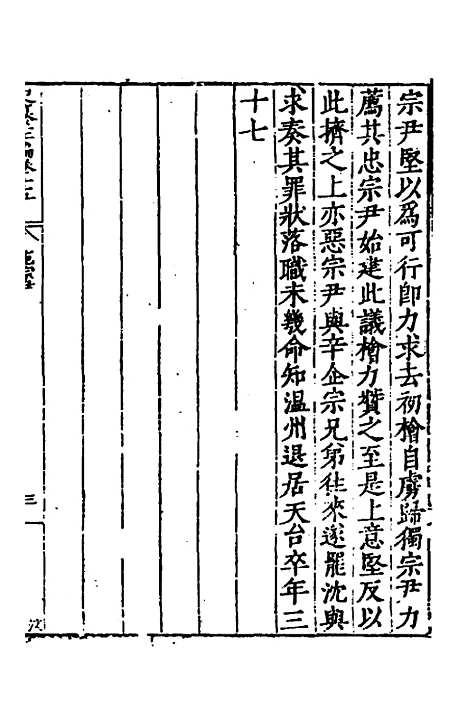 宗尹堅以爲可行卽力求去初檜自虜歸獨宗尹力
薦其忠宗尹始建此議檜力贊之至是上意堅反以
此擠之上亦惡宗尹與辛企宗兄弟往來遂罷沈與
求奏其罪狀落職未幾命知温州退居天台卒年三
十七
三